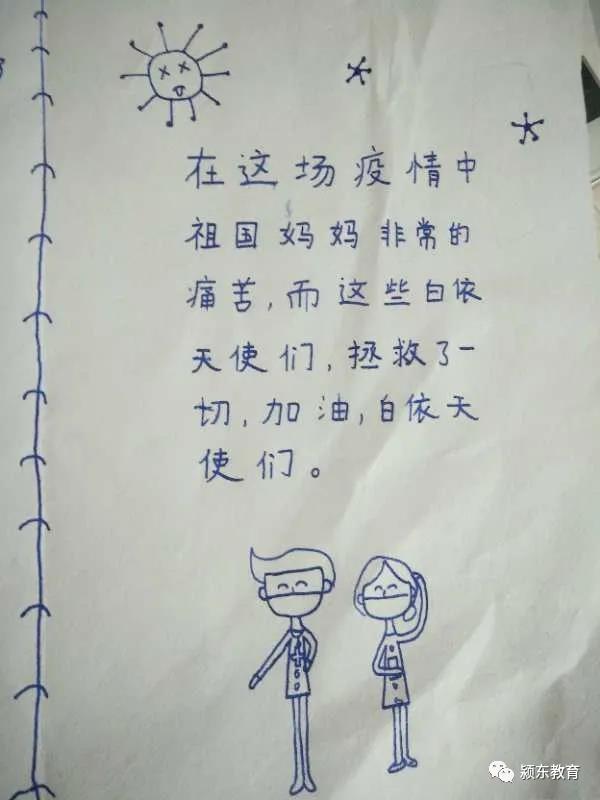 在这场疫情中
祖国妈妈非常的
痛苦,而这些白依
天使们,拯救了一
切,加油,白依天
使们。
颍东教育